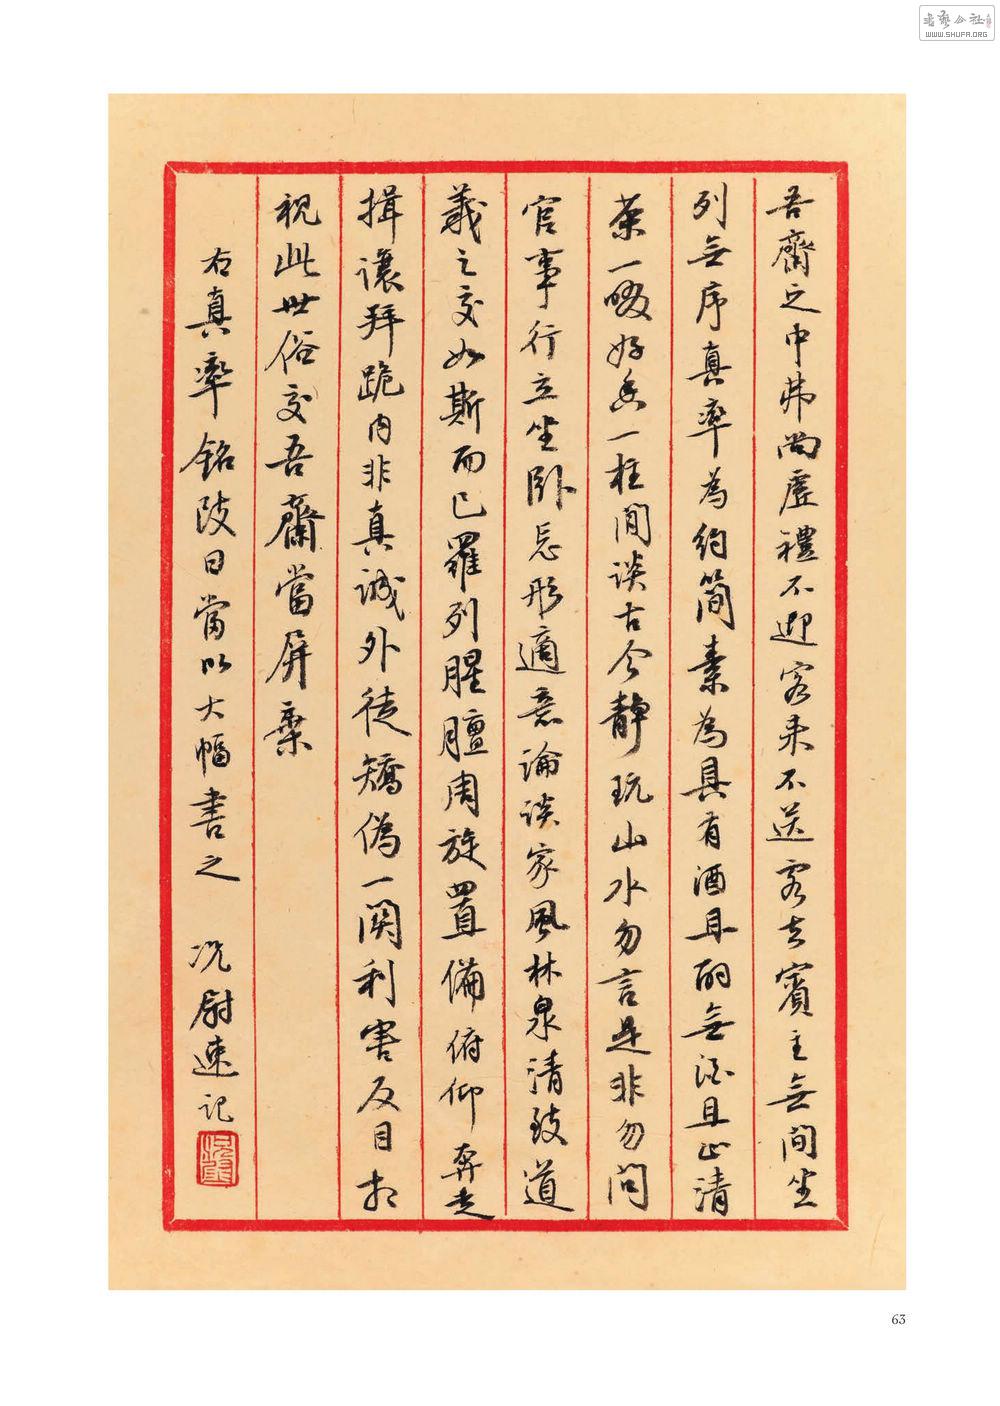 吾齋之中弗尚虛禮不迎客來不送客去賓主無間坐
列無序真率為約簡素為具有酒且酌無酒且止清
茶一啜好香一柱閒談古今靜玩山水勿言是非勿問
官事行立坐卧忘形適意論談家風林泉清致道
義之交如斯而已羅列腥膻周旋置備俯仰奔走
揖讓拜跪内非真誠外徒矯偽一関利害反目相
視此世俗交吾齋當屏棄
右真率銘跋曰當以大幅書之 况尉速記
書藝公社
WWW.SHUFA.ORG
63